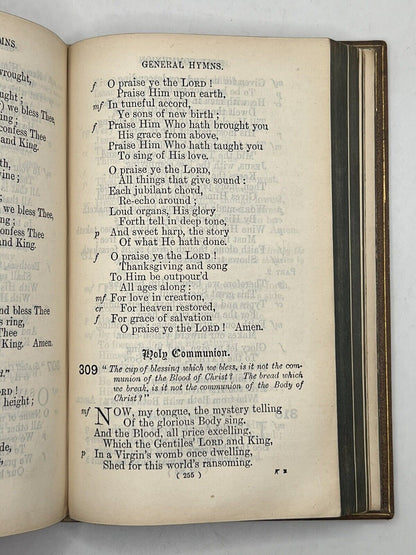 MNS.
wrought,
;
) we bless Thee
confess Thee
and King.
vine;
we bless Thee,
onfess Thee
and King.
and bless Thee,
s ring,
King. Amen.
d."
LORD!
height;
de,
GENERAL HYMNS.
f O praise ye the LORD!
Praise Him upon earth,
mf In tuneful accord,
Ye sons of new birth;
f Praise Him Who hath brought you
His grace from above,
Praise Him Who hath taught you
To sing of His love.
O praise ye the LORD,
All things that give sound:
Each jubilant chord,
Re-echo around;
Loud organs, His glory
Forth tell in deep tone,
p And sweet harp, the story
Of what He hath done.
f O praise ye the LORD!
Thanksgiving and song
To Him be outpour'd
All ages along;
mf For love in creation,
cr For heaven restored,
f For grace of salvation
O praise ye the LORD! Amen.
Holy Communion.
309 "The cup of blessing which we bless, is it not the com-
munion of the Blood of Christ? The bread which
we break, is it not the communion of the Body of
Christ?"
mf NOW, my tongue, the mystery telling
Of the glorious Body sing,
And the Blood, all price excelling,
Which the Gentiles' LORD and King,
p In a Virgin's womb once dwelling,
Shed for this world's ransoming.
( 255 )